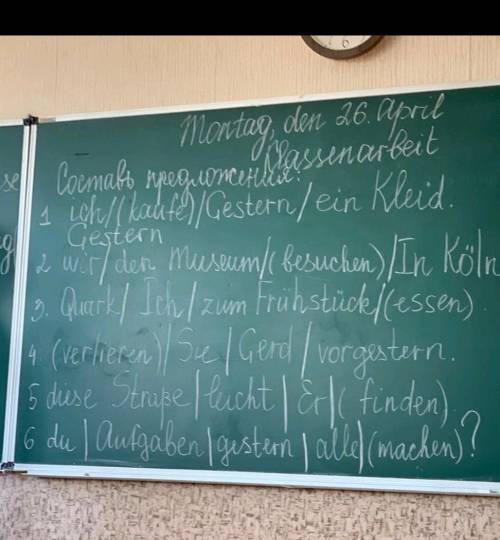 Montag, den 26. April
Classenarbeit
Составь предложения:
1 ich/(kaufe)/Gestern/ein Kleid.
Gestern
2 wir/den Museum/(besuchen)/In Köln
3. Quark/Ich/zum Frühstück/(essen)
4. (verlieren)/Sie/Gerd/vorgestern.
5 diese Straße/leicht/Er/(finden)
6 du/Aufgaben/gestern/alle/(machen)?